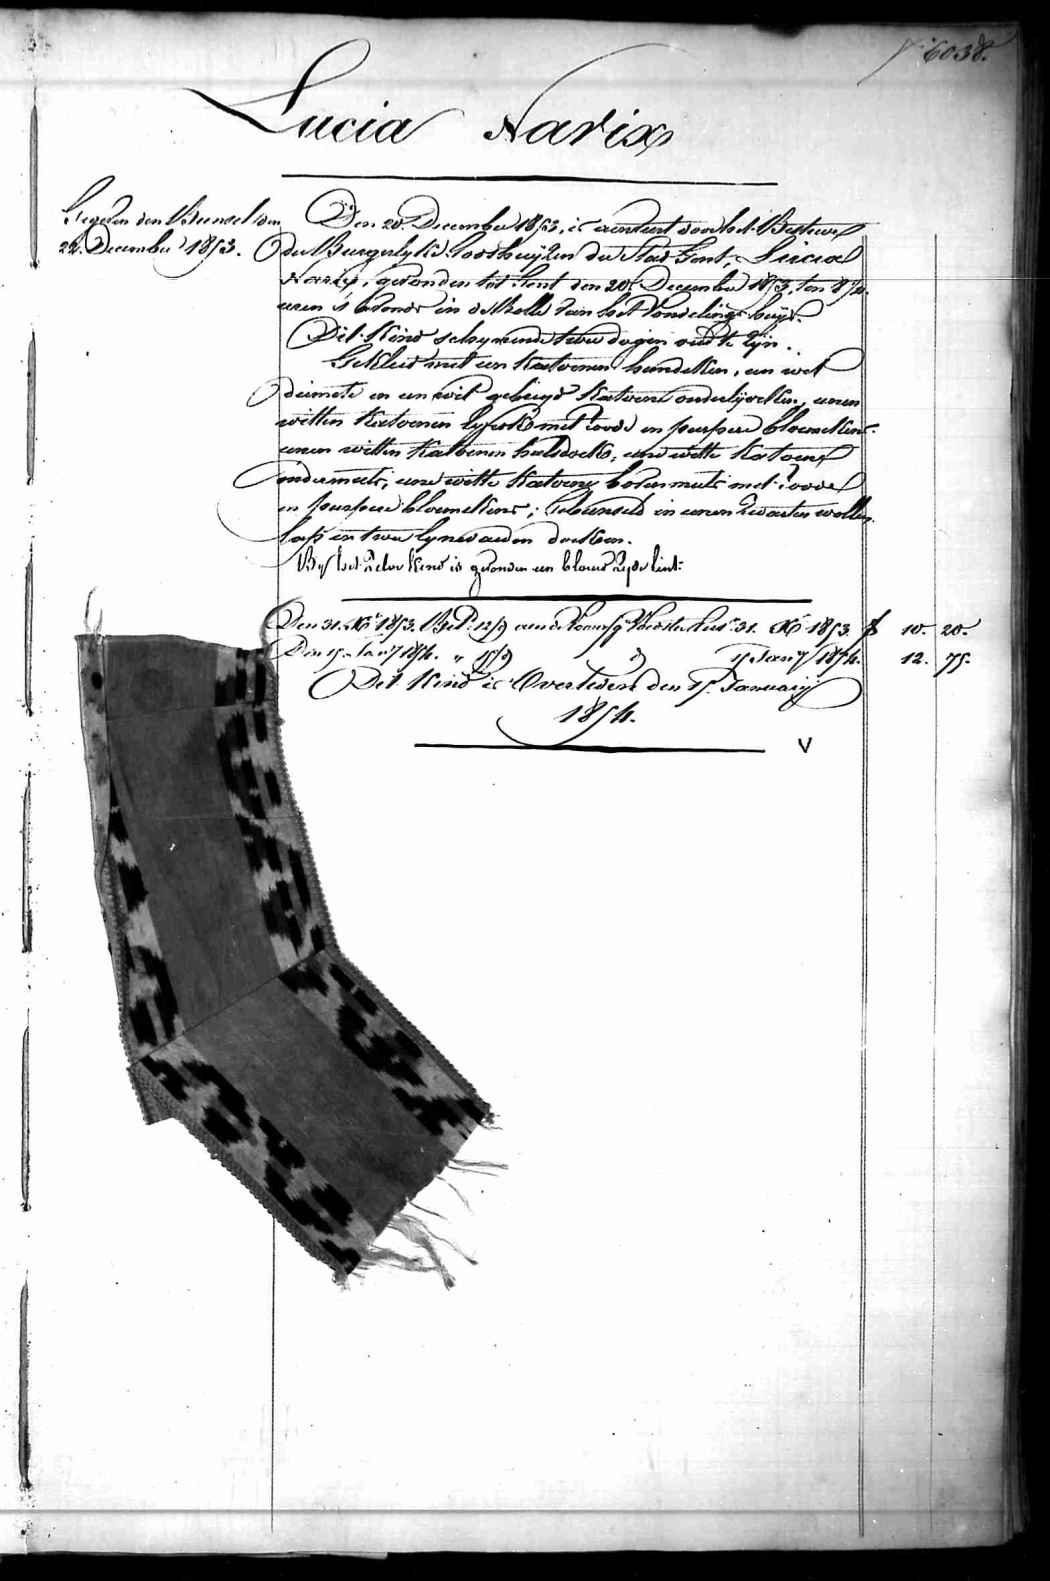 6038.
Lucia Narix
Gegeven den Bunsel den
22. December 1853.
Den 20. December 1853, is aenveert door het Bestuer
der Burgerlyke Godshuyzen der Stad Gent, Lucia
Narix, gevonden tot Gent den 20. December 1853, ten 8 1/2
uren 's avonds in de Rolle van het Vondelingshuys.
Dit Kind schynende twee dagen oud te zyn.
Gekleed met een Katoenen hemdeken, een wit
deimete en een wit gebreyd Katoene onderlyveken, eenen
witten Katoenen lyfrok met roode en purpere bloemekens
eenen witten Katoenen halsdoek, eene witte Katoene
ondermuts, eene witte Katoene bovenmuts met roode
en purpere bloemekens; Gebunseld in eenen zwarten wollen
lap en twee lynwaeden doeken.
By het Kind is gevonden een blauw zyde lint.
Den 31. Xb 1853. Bet. 12/9 aen de 31. Xb 1853. f 10. 20.
Den 15. Jany 1854. " 15/9 d 15 Jany 1854. 12. 75.
Dit Kind is Overleden den 15. January
1854.
V